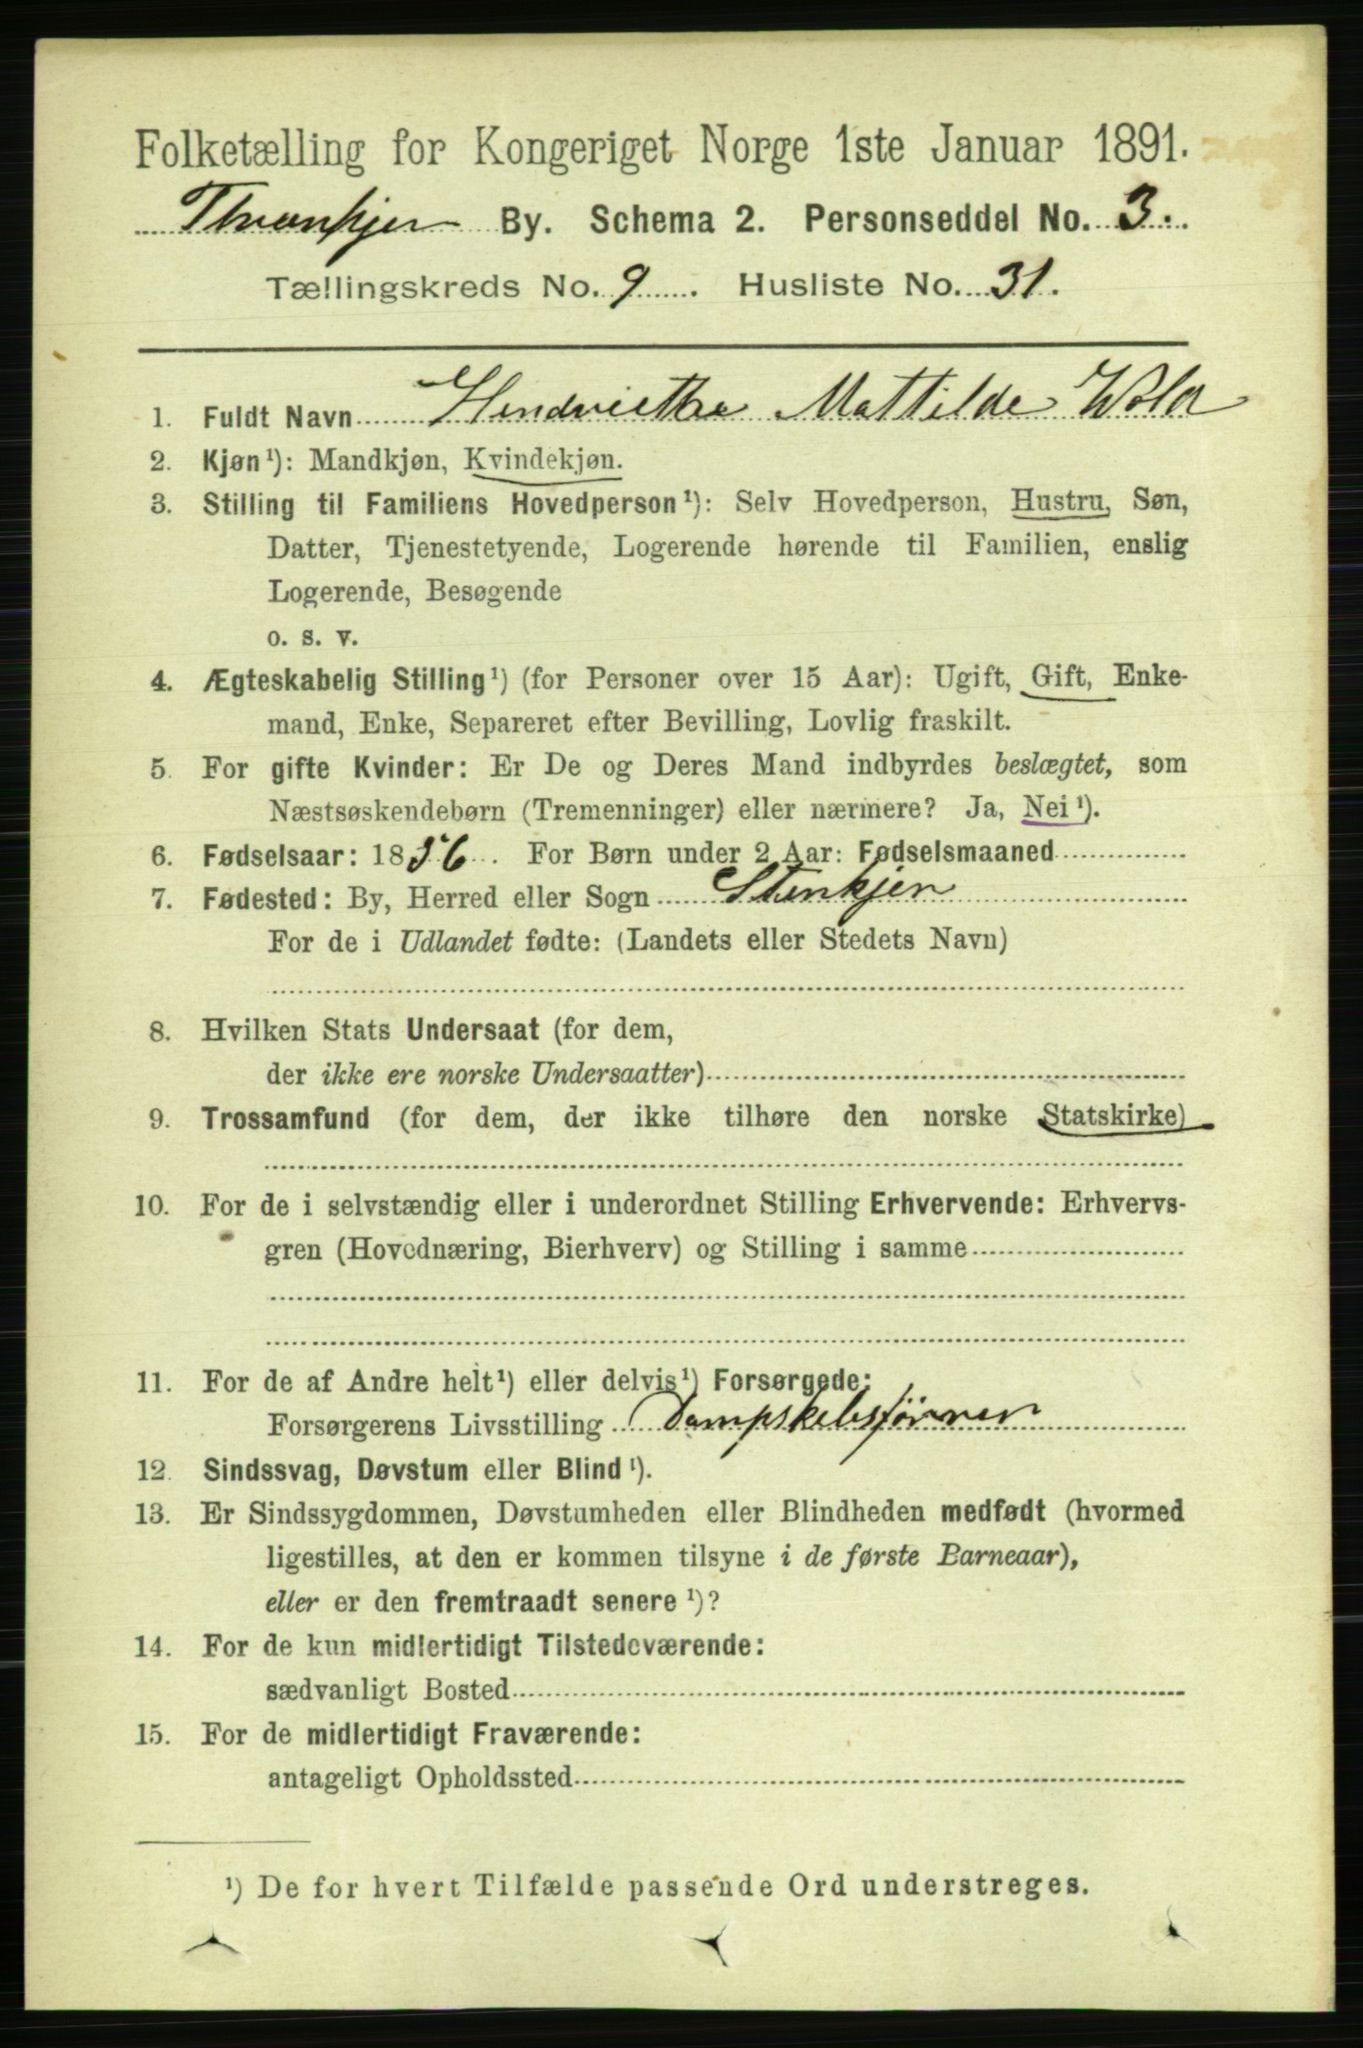 Folketælling for Kongeriget Norge 1ste Januar 1891.
Thronhjer By. Schema 2. Personseddel No. 3.
Tællingskreds No. 9. Husliste No. 31.
1. Fuldt Navn Hendriette Mathilde Wold
2. Kjøn¹): Mandkjøn, Kvindekjøn.
3. Stilling til Familiens Hovedperson¹): Selv Hovedperson, Hustru, Søn,
Datter, Tjenestetyende, Logerende hørende til Familien, enslig
Logerende, Besøgende
o. s. v.
4. Ægteskabelig Stilling¹) (for Personer over 15 Aar): Ugift, Gift, Enke-
mand, Enke, Separeret efter Bevilling, Lovlig fraskilt.
5. For gifte Kvinder: Er De og Deres Mand indbyrdes beslægtet, som
Næstsøskendebørn (Tremenninger) eller nærmere? Ja, Nei¹).
6. Fødselsaar: 1856. For Børn under 2 Aar: Fødselsmaaned
7. Fødested: By, Herred eller Sogn Stenkjer
For de i Udlandet fødte: (Landets eller Stedets Navn)
8. Hvilken Stats Undersaat (for dem,
der ikke ere norske Undersaatter)
9. Trossamfund (for dem, der ikke tilhøre den norske Statskirke)
10. For de i selvstændig eller i underordnet Stilling Erhvervende: Erhvervs-
gren (Hovednæring, Bierhverv) og Stilling i samme
11. For de af Andre helt¹) eller delvis¹) Forsørgede:
Forsørgerens Livsstilling Dampskibsfører
12. Sindssvag, Døvstum eller Blind¹).
13. Er Sindssygdommen, Døvstumheden eller Blindheden medfødt (hvormed
ligestilles, at den er kommen tilsyne i de første Barneaar),
eller er den fremtraadt senere¹)?
14. For de kun midlertidigt Tilstedeværende:
sædvanligt Bosted
15. For de midlertidigt Fraværende:
antageligt Opholdssted
¹) De for hvert Tilfælde passende Ord understreges.